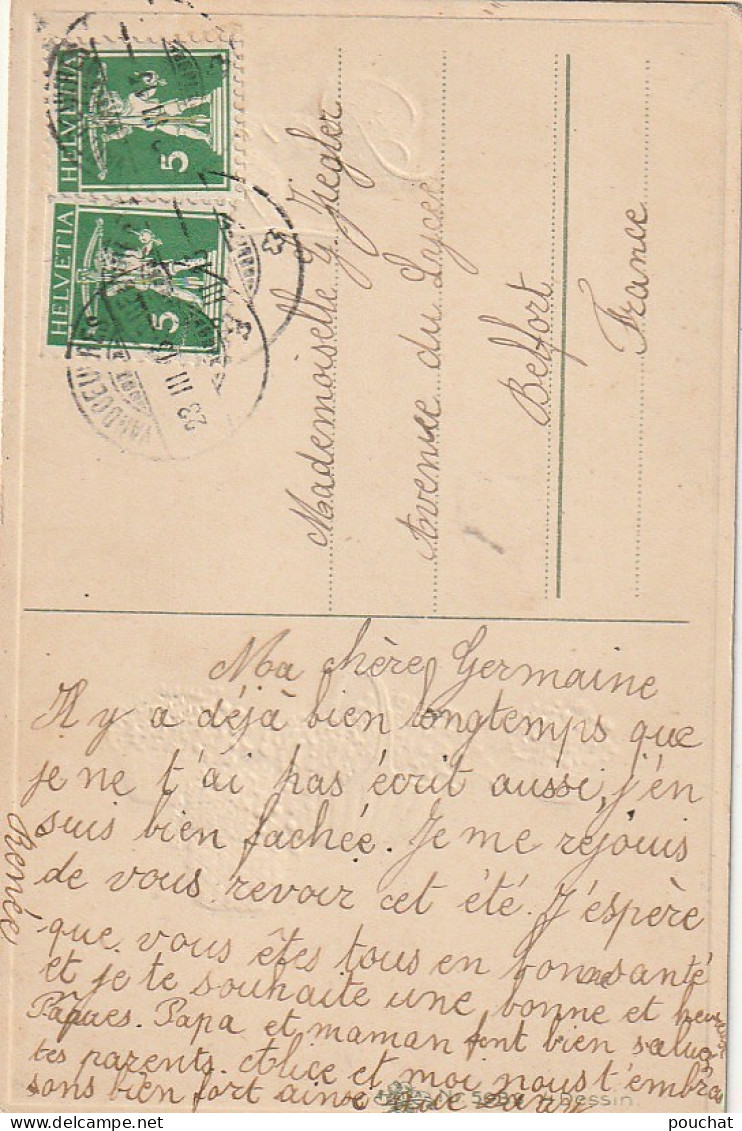 HELVETIA 5
HELVETIA 5
23 III
Mademoiselle G. Ziegler
Avenue du Lycée
Belfort
France
Ma chère Germaine
Il y a déjà bien longtemps que
je ne t'ai pas écrit aussi, j'en
suis bien fachée. Je me rejouis
de vous revoir cet été. J'espère
que vous êtes tous en bonne santé
et je te souhaite une bonne et heureuse
Pâques. Papa et maman font bien saluer
tes parents. Alice et moi nous t'embras
sons bien fort ainsi que
Renée
Dessin.
pouchat